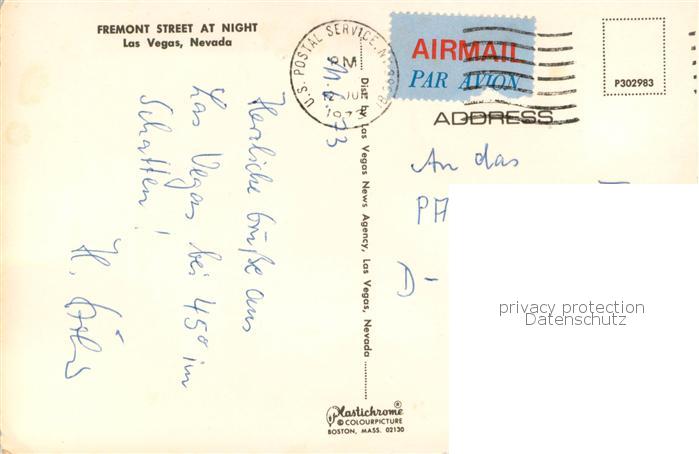 FREMONT STREET AT NIGHT
Las Vegas, Nevada
U.S. POSTAL SERVICE, N
PM
JU
197
AIRMAIL
PAR AVION
P302983
ADDRESS
73
Herzliche Grüße aus
Las Vegas bei 45° im
Schatten!
H.
Dist. by Las Vegas News Agency, Las Vegas, Nevada
An das
PA
D-
privacy protection
Datenschutz
Plastichrome®
© COLOURPICTURE
BOSTON, MASS. 02130